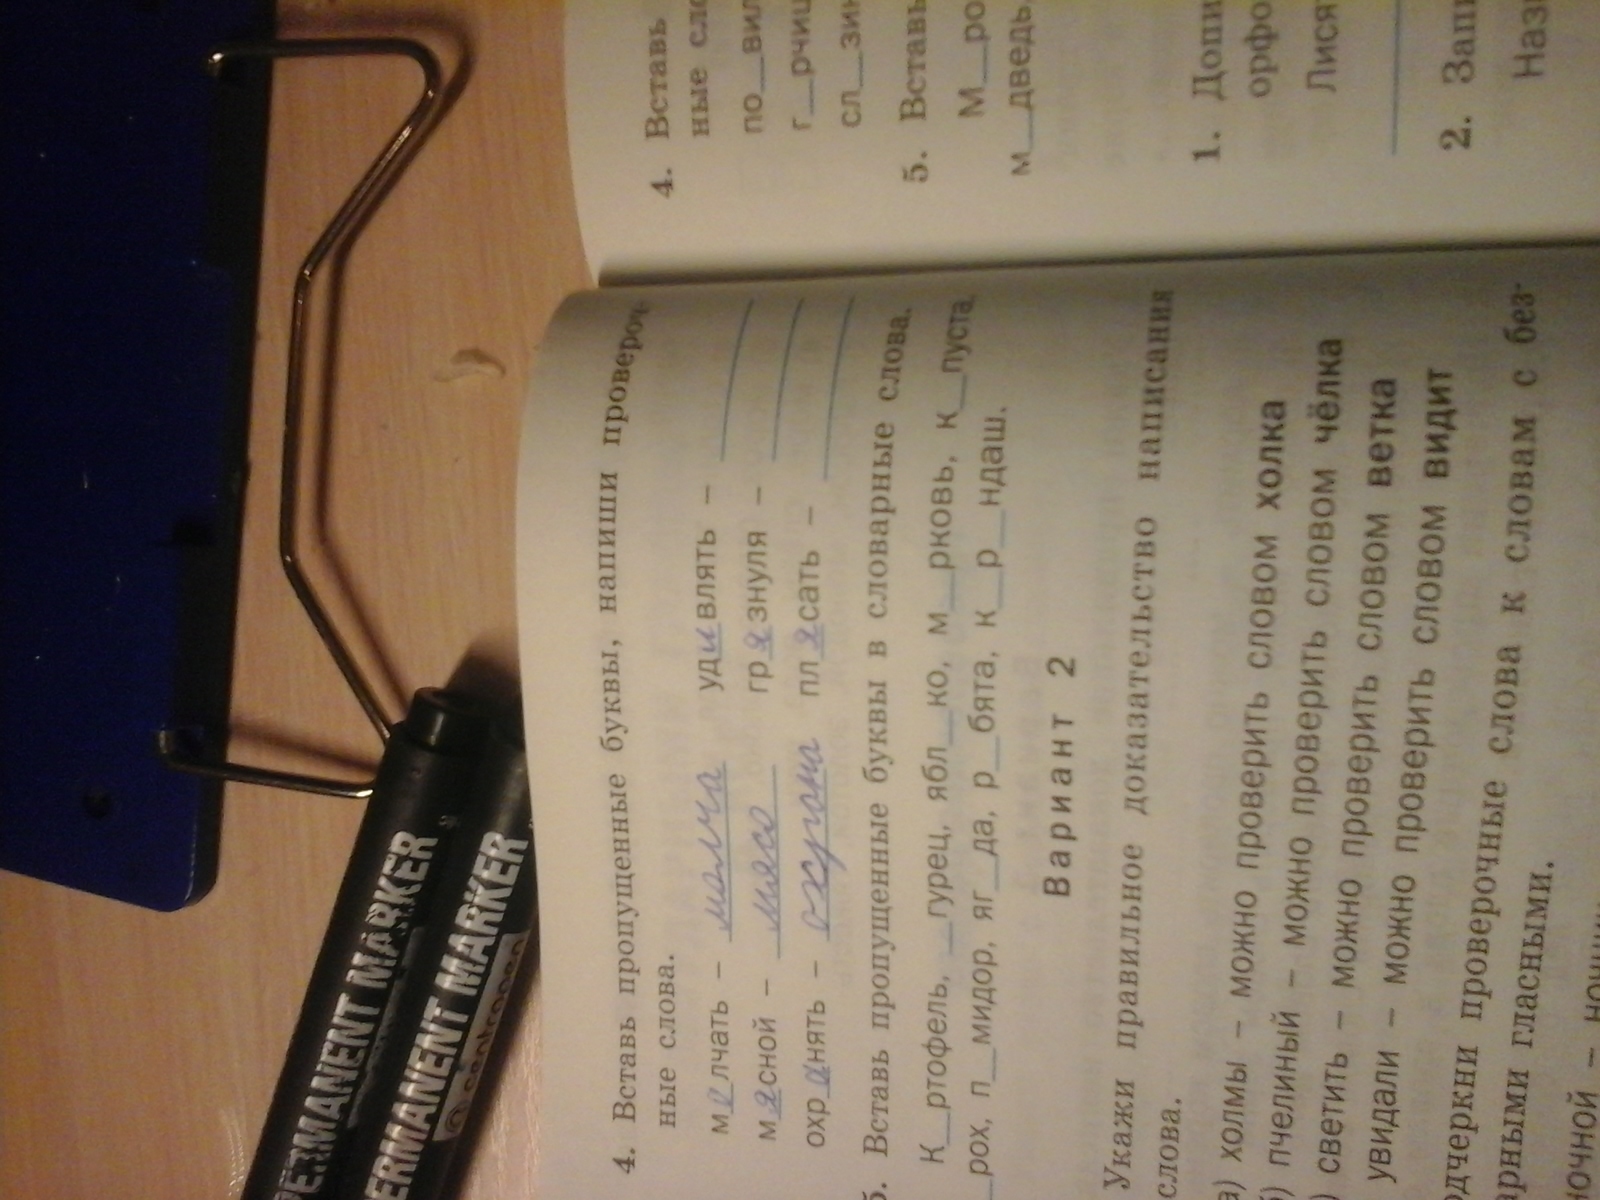 4. Вставь пропущенные буквы, напиши провероч-
ные слова.
м е лчать – молча уд и влять –
м я сной – мясо гр я знуля –
охр а нять – охрана пл я сать –
5. Вставь пропущенные буквы в словарные слова.
К__ртофель, __гурец, ябл__ко, м__рковь, к__пуста,
__рох, п__мидор, яг__да, р__бята, к__р__ндаш.
Вариант 2
Укажи правильное доказательство написания
слова.
а) холмы – можно проверить словом холка
б) пчелиный – можно проверить словом чёлка
) светить – можно проверить словом ветка
увидали – можно проверить словом видит
одчеркни проверочные слова к словам с без-
рными гласными.
очной –
4. Вставь
ные сло
по__вил
г__рчиц
сл__зин
5. Вставь
М__ро
м__дведь,
1. Допи
орфо
Лися
2. Запи
Назв
PERMANENT MARKER
PERMANENT MARKER
centropen